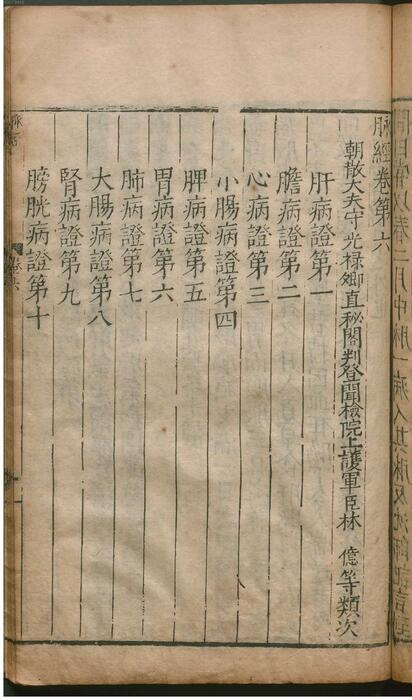 脉經卷第六
朝散大夫守光禄卿直秘閣判登聞檢院上護軍臣林　億等類次
肝病證第一
膽病證第二
心病證第三
小腸病證第四
脾病證第五
胃病證第六
肺病證第七
大腸病證第八
腎病證第九
膀胱病證第十